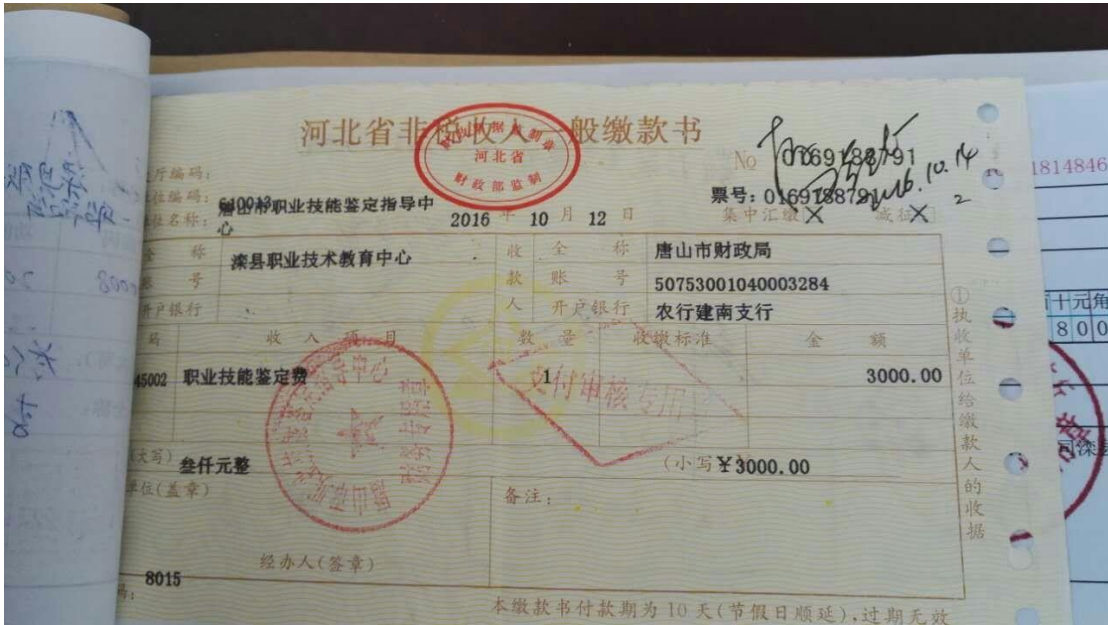 河北省非税收入一般缴款书
河北省
财政部监制
No 0169188791
厅编码:
位编码:
票号:0169188791
2016.10.14
单位名称: 唐山市职业技能鉴定指导中心
2016 年 10 月 12 日
集中汇缴 X 减征 X
全 称 滦县职业技术教育中心 收 全 称 唐山市财政局
账 号 款 账 号 50753001040003284
开户银行 人 开户银行 农行建南支行
码 收 入 项 目 数 量 收缴标准 金 额
45002 职业技能鉴定费 1 3000.00
支付审核专用
(大写) 叁仟元整 (小写) ¥3000.00
单位(盖章) 备注:
经办人(签章)
8015
码:
本缴款书付款期为10天(节假日顺延),过期无效
①执收单位给缴款人的收据
1814846
百十元角
800